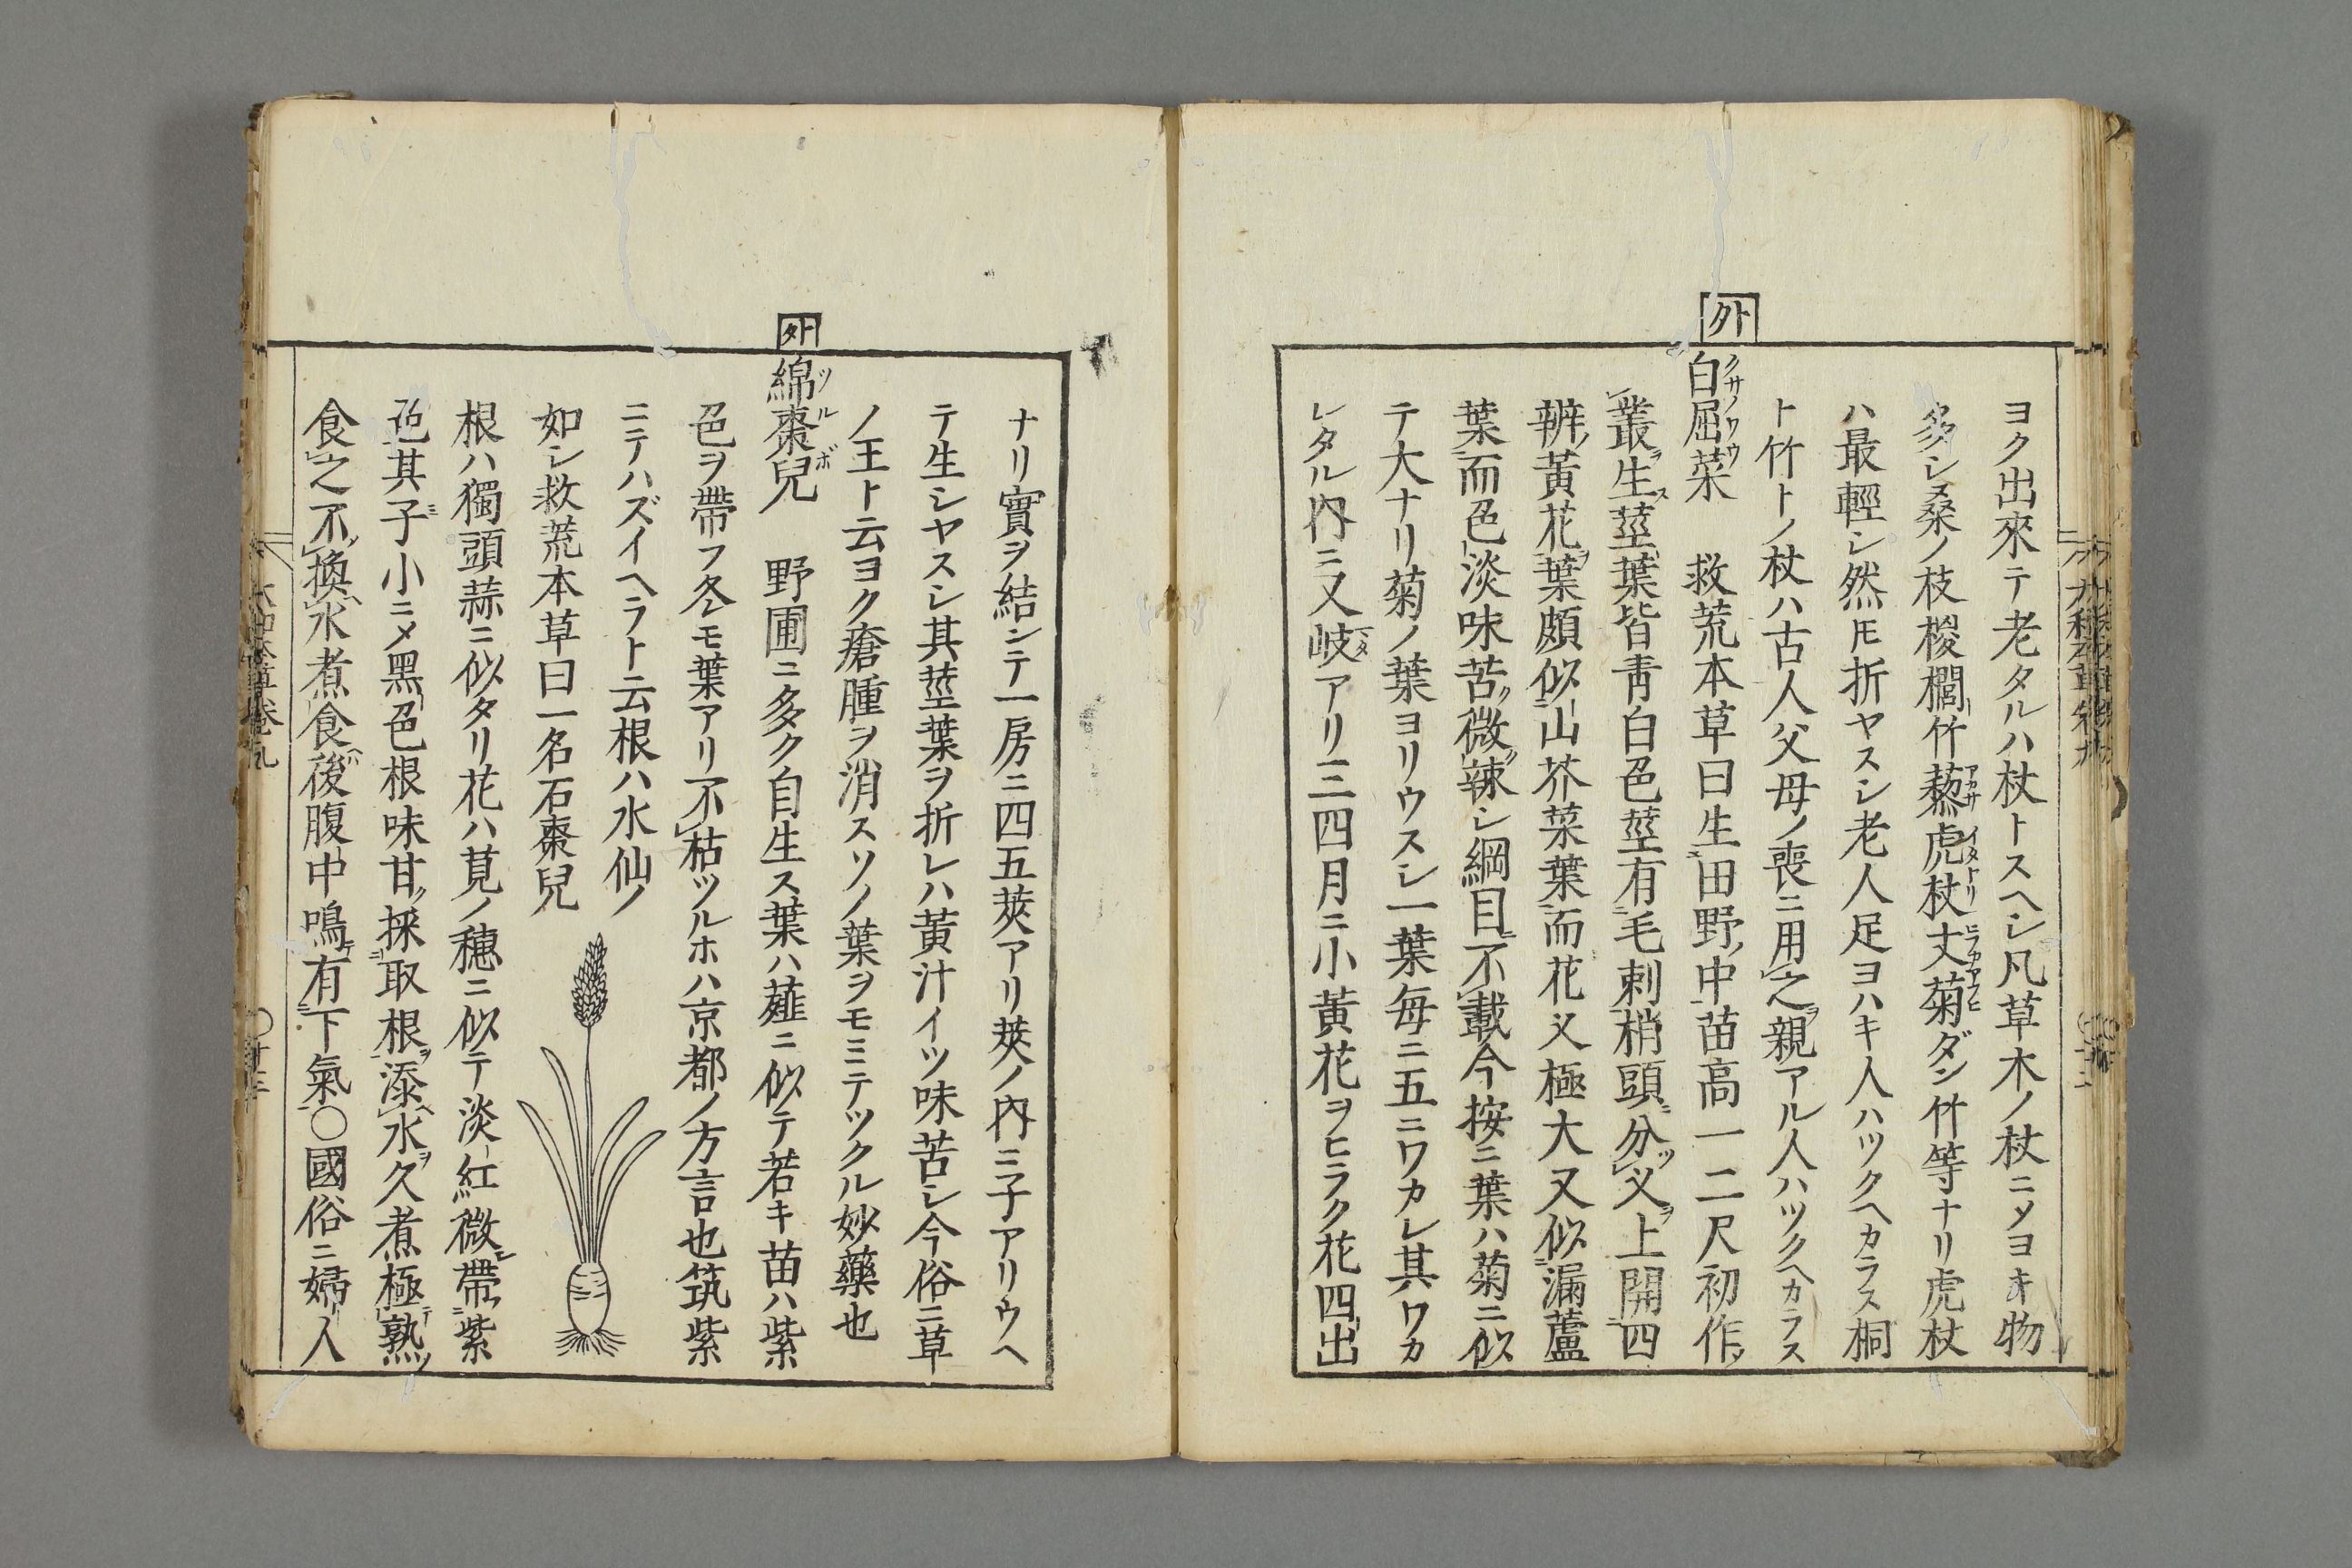 ヨク出來テ老タルハ杖トスヘシ凡草木ノ杖ニメヨキ物
多シ桑ノ枝椶櫚竹藜虎杖丈菊ダン竹等ナリ虎杖
ハ最輕シ然𪜈折ヤスシ老人足ヨハキ人ハツクヘカラス桐
ト竹トノ杖ハ古人父母ノ喪ニ用之親アル人ハツクヘカラス
外
白屈菜 救荒本草曰生田野中苗高一二尺初作
クサノワウ
叢生莖葉皆青白色莖有毛刺梢頭分义上開四
辨黃花葉頗似山芥菜葉而花义極大又似漏蘆
葉而色淡味苦微辣シ綱目不載今按ニ葉ハ菊ニ似
テ大ナリ菊ノ葉ヨリウスシ一葉毎ニ五ニワカレ其ワカ
レタル內ニ又岐アリ三四月ニ小黃花ヲヒラク花四出
ナリ實ヲ結ンテ一房ニ四五莢アリ莢ノ內ニ子アリウヘ
テ生シヤスシ其莖葉ヲ折レハ黃汁イツ味苦シ今俗ニ草
ノ王ト云ヨク瘡腫ヲ消スソノ葉ヲモミテツクル妙藥也
外
綿棗兒 野圃ニ多ク自生ス葉ハ薤ニ似テ若キ苗ハ紫
ツルボ
色ヲ帶フ冬モ葉アリ不枯ツルホハ京都ノ方言也筑紫
ニテハズイヘラト云根ハ水仙ノ
如シ救荒本草曰一名石棗兒
根ハ獨頭蒜ニ似タリ花ハ莧ノ穗ニ似テ淡紅微帶紫
色其子小ニメ黑色根味甘採取根添水久煮極熟
食之不換水煮食後腹中鳴有下氣○國俗ニ婦人
大和本草卷九